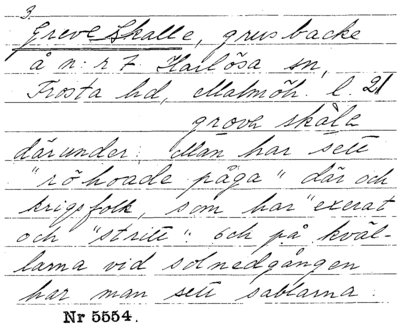 3.
Greve Skalle, grusbacke
å n:r 7 Harlösa sn,
Frosta hd, Malmöh. l. 21
grove skale
därunder. Man har sett
"röhoade påga" där och
krigsfolk, som har "exerat
och "stritt". och på kväl-
larna vid solnedgången
har man sett sablarna.
Nr 5554.